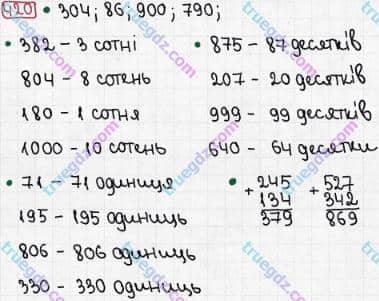 420 • 304; 86; 900; 790;
• 382 - 3 сотні
804 - 8 сотень
180 - 1 сотня
1000 - 10 сотень
• 875 - 87 десятків
207 - 20 десятків
999 - 99 десятків
640 - 64 десятки
• 71 - 71 одиниця
195 - 195 одиниць
806 - 806 одиниць
330 - 330 одиниць
• + 245 + 527
134 342
379 869
truegdz.com